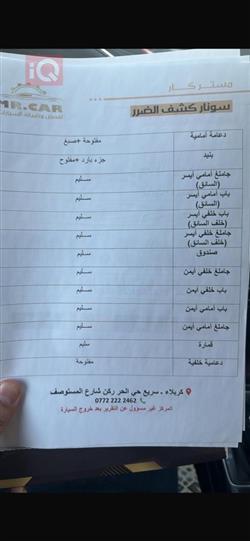 iQ
مستر كار
MR.CAR
سونار كشف الضرر
دعامة أمامية مفلوحة +صبغ
بنيد جزء بارد +مفلوح
جاملغ أمامي أيسر (السائق) سليم
باب أمامي أيسر (السائق) سليم
باب خلفي أيسر (خلف السائق) سليم
جاملغ خلفي أيسر (خلف السائق) سليم
صندوق سليم
جاملغ خلفي أيمن سليم
باب خلفي أيمن سليم
باب أمامي أيمن سليم
جاملغ أمامي أيمن سليم
قمارة سليم
دعامية خلفية مفلوحة
كربلاء ، سريع حي الحر ركن شارع المستوصف
0772 222 2462
المركز غير مسؤول عن التقرير بعد خروج السيارة